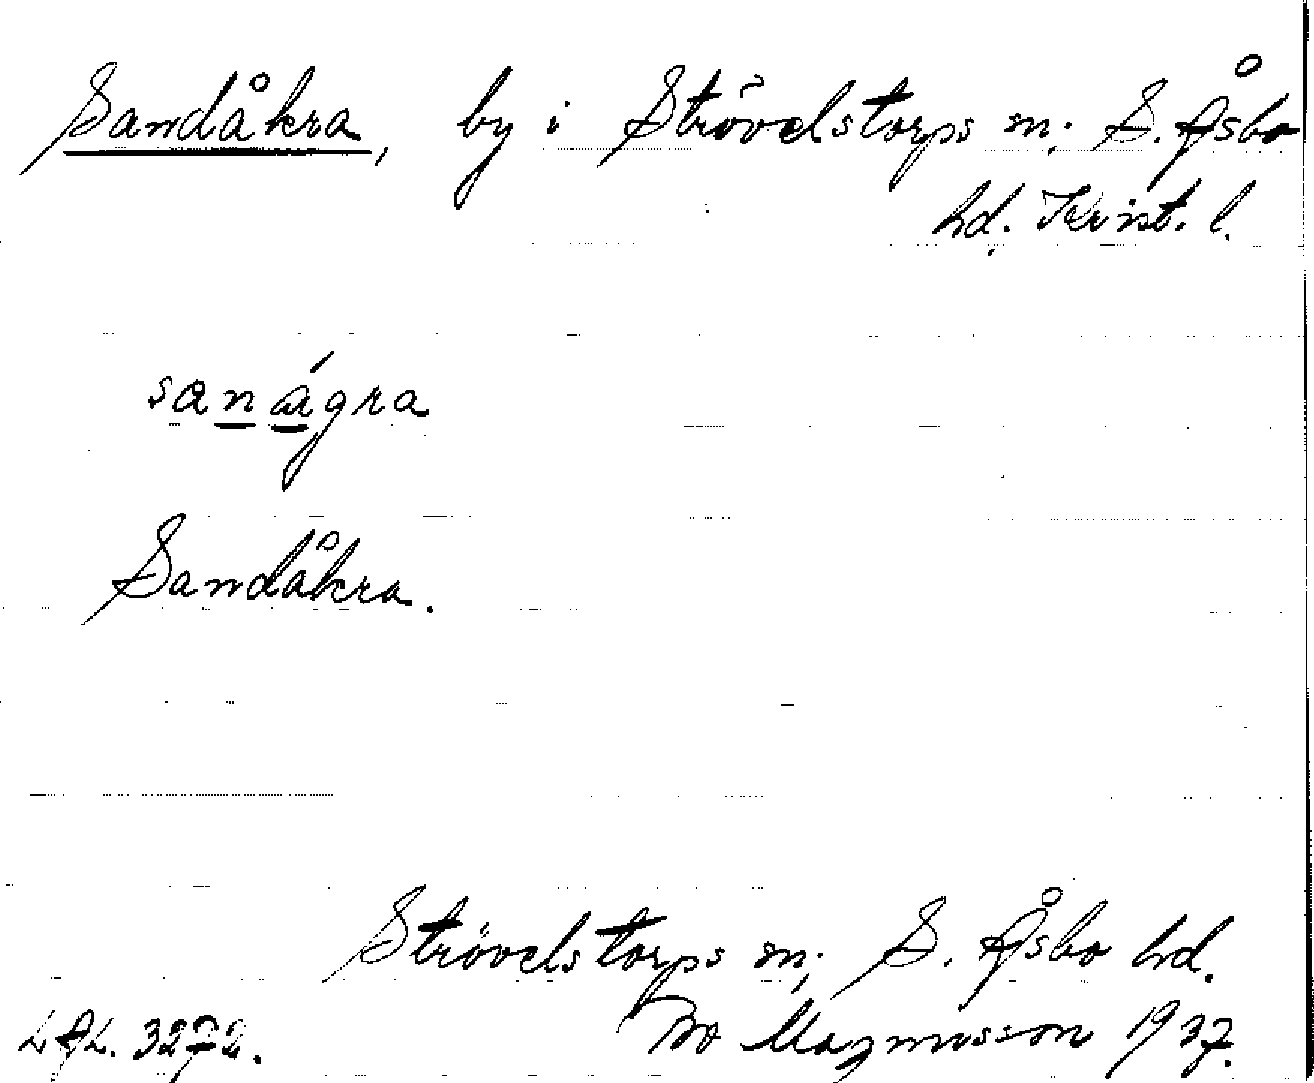 Sandåkra, by i Strövelstorps sn; S. Åsbo
hd. Krist. l.
sanágra
Sandåkra.
Strövelstorps sn; S. Åsbo hd.
3272.
Bo Magnusson 1937.